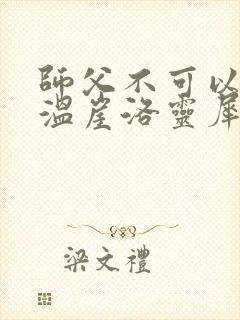 師父不可以
溫崖洛靈犀
梁文禮